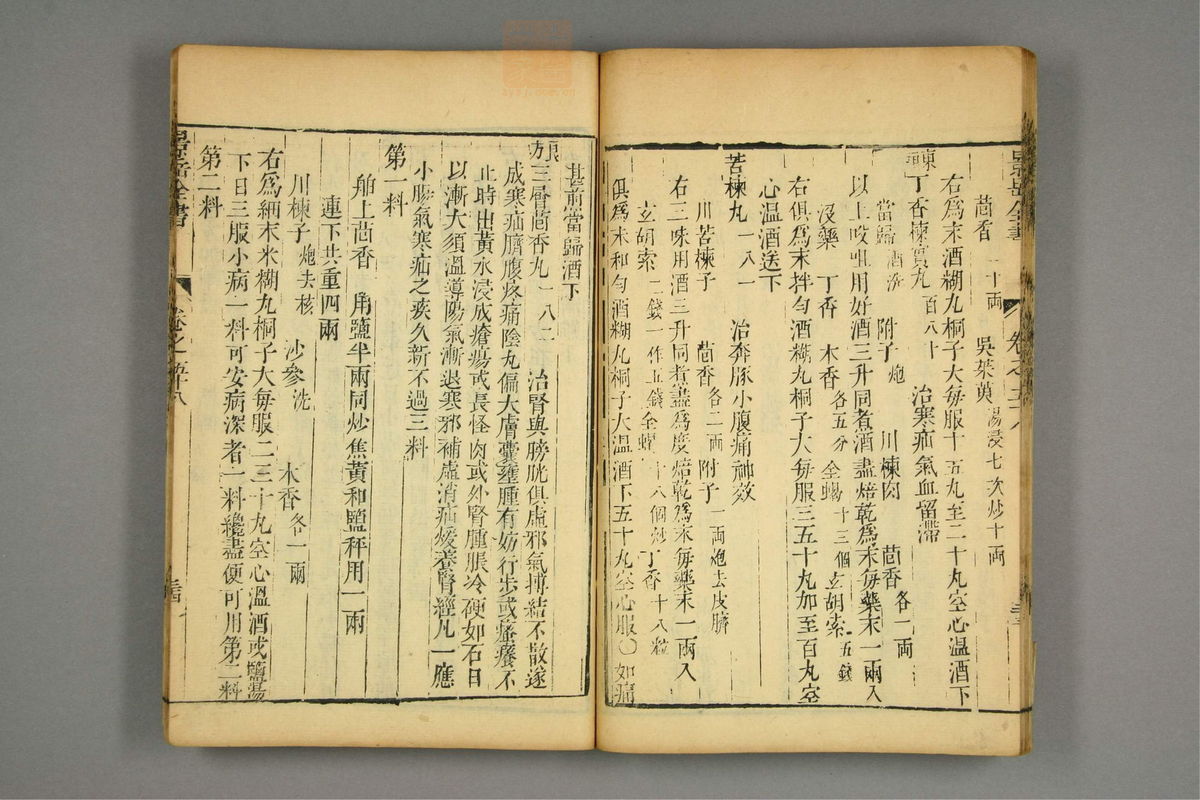 景岳全書 卷之五十八
茴香二十両 吳茱萸湯浸七次炒十両
右為末酒糊丸桐子大每服十五丸至二十丸空心温酒下
丁香楝實丸百八十 治寒疝氣血留滯
當歸酒洗 附子炮 川楝肉 茴香各一両
以上㕮咀用好酒三升同煮酒盡焙乾為末每藥末一両入
沒藥 丁香 木香各五分 全蝎十三個 玄胡索五錢
右俱為末拌勻酒糊丸桐子大每服三五十丸加至百丸空
心温酒送下
苦楝丸一八一 治奔豚小腹痛神效
川苦楝子 茴香各二両 附子一両炮去皮臍
右三味用酒三升同煮盡為度焙乾為末每藥末一両入
玄胡索二錢一作五錢 全蝎十八個炒 丁香十八粒
俱為末和勻酒糊丸桐子大温酒下五十丸空心服〇如痛
甚煎當歸酒下
三層茴香丸一八二 治腎與膀胱俱虛邪氣搏結不散遂
成寒疝臍腹疼痛陰丸偏大膚囊壅腫有妨行步或瘙癢不
止時出黃水浸成瘡瘍或長怪肉或外腎腫脹冷硬如石日
以漸大須溫導陽氣漸退寒邪補虛消疝煖養腎經凡一應
小腸氣寒疝之疾久新不過三料
第一料
舶上茴香用鹽半兩同炒焦黃和鹽秤用一兩
連下共重四兩
川楝子炮去核 沙參洗 木香各一兩
右為細末米糊丸桐子大每服二三十丸空心溫酒或鹽湯
下日三服小病一料可安病深者一料纔盡便可用第二料
第二料
景岳全書 卷之五十八